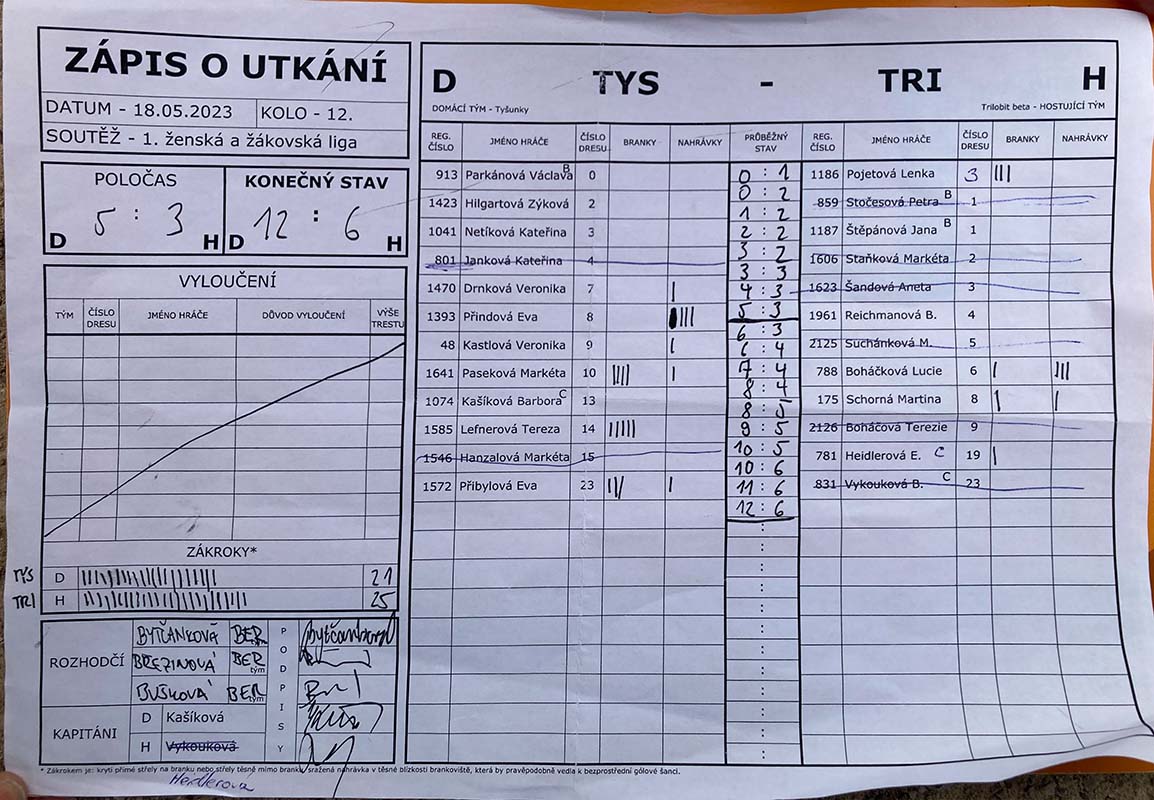 ZÁPIS O UTKÁNÍ
DATUM - 18.05.2023 KOLO - 12.
SOUTĚŽ - 1. ženská a žákovská liga
POLOČAS KONEČNÝ STAV
D 5 : 3 H D 12 : 6 H
VYLOUČENÍ
TÝM ČÍSLO DRESU JMÉNO HRÁČE DŮVOD VYLOUČENÍ VÝŠE TRESTU
ZÁKROKY*
TYS D 21
TRI H 25
ROZHODČÍ
BYTČANKOVÁ BER tým
BŘEZINOVÁ BER tým
BUŠKOVÁ BER tým
PODPISY
KAPITÁNI
D Kašíková
H Vykouková
Heidlerová
D TYS - TRI H
DOMÁCÍ TÝM - Tyšunky Trilobit beta - HOSTUJÍCÍ TÝM
REG. ČÍSLO JMÉNO HRÁČE ČÍSLO DRESU BRANKY NAHRÁVKY PRŮBĚŽNÝ STAV REG. ČÍSLO JMÉNO HRÁČE ČÍSLO DRESU BRANKY NAHRÁVKY
913 Parkánová Václava B 0
1423 Hilgartová Zýková 2
1041 Netíková Kateřina 3
801 Janková Kateřina 4
1470 Drnková Veronika 7 |
1393 Přindová Eva 8 |||
48 Kastlová Veronika 9 |
1641 Paseková Markéta 10 |||| |
1074 Kašíková Barbora C 13
1585 Lefnerová Tereza 14 |||||
1546 Hanzalová Markéta 15
1572 Přibylová Eva 23 ||| |
0 : 1
0 : 2
1 : 2
2 : 2
3 : 2
3 : 3
4 : 3
5 : 3
6 : 3
6 : 4
7 : 4
8 : 4
8 : 5
9 : 5
10 : 5
10 : 6
11 : 6
12 : 6
1186 Pojetová Lenka 3 |||
859 Stočesová Petra B 1
1187 Štěpánová Jana B 1
1606 Staňková Markéta 2
1623 Šandová Aneta 3
1961 Reichmanová B. 4
2125 Suchánková M. 5
788 Boháčková Lucie 6 | |||
175 Schorná Martina 8 | |
2126 Boháčová Terezie 9
781 Heidlerová E. C 19 |
831 Vykouková B. C 23
* Zákrokem je: krytí přímé střely na branku nebo střely těsně mimo branku, sražená nahrávka v těsné blízkosti brankoviště, která by pravěpodobně vedla k bezprostřední gólové šanci.